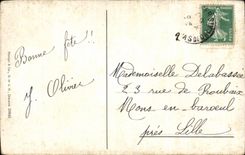 Bonne fête !!
J. Olivier
Mademoiselle Delabasse
23 rue de Roubaix
Mons en-barœul
près Lille